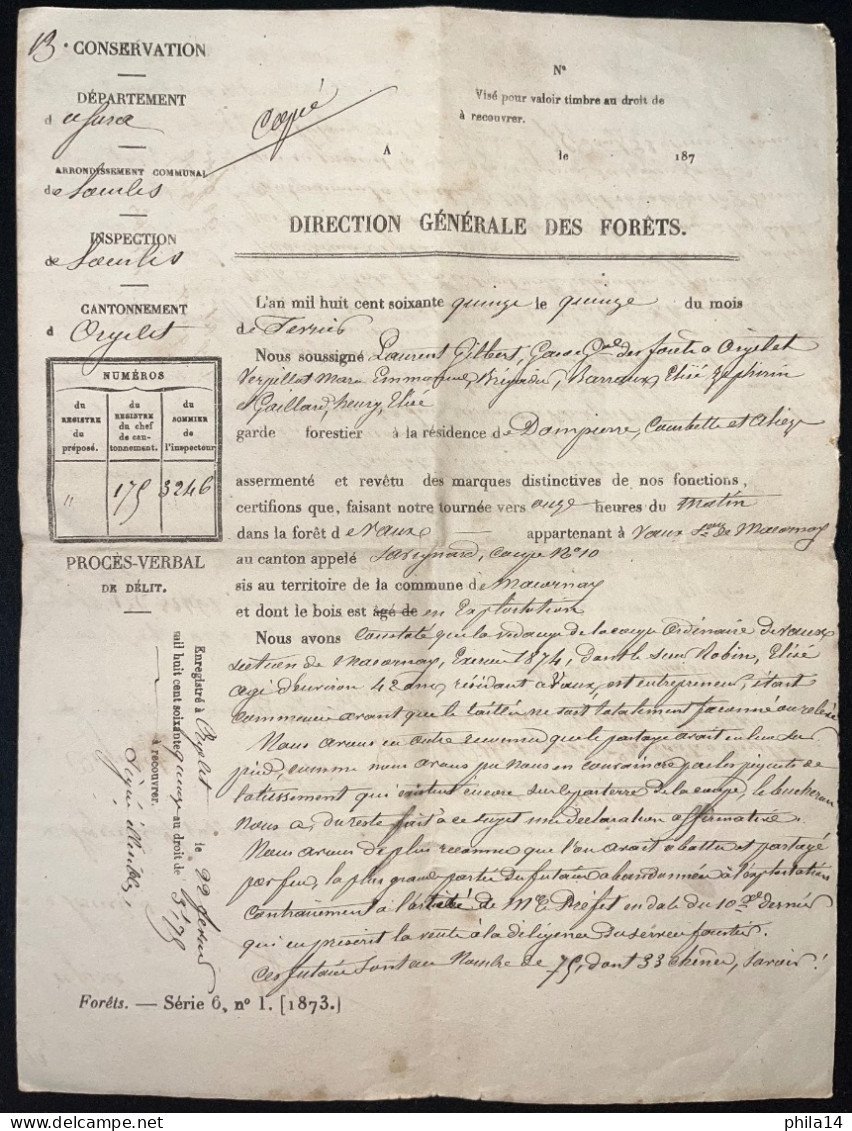 13e CONSERVATION
DÉPARTEMENT
d u Jura
ARRONDISSEMENT COMMUNAL
de
INSPECTION
de
CANTONNEMENT
d' Orgelet
Copie
N°
Visé pour valoir timbre au droit de
à recouvrer.
A le 187
DIRECTION GÉNÉRALE DES FORÊTS.
NUMÉROS
du REGISTRE du préposé.
du REGISTRE du chef de can-tonnement.
du SOMMIER de l'inspecteur
" 175 3246
PROCÈS-VERBAL
DE DÉLIT.
L'an mil huit cent soixante quinze le quinze du mois
de Février
Nous soussigné Laurent Gilbert, Garde Gal des forêts à Orgelet
Marie Emmanuel, Barraux, Elisé Zéphirin
et Gaillard, henry, Elisé
garde forestier à la résidence de Dompierre, Courbette et Alièze
assermenté et revêtu des marques distinctives de nos fonctions,
certifions que, faisant notre tournée vers onze heures du Matin
dans la forêt de Vaux appartenant à Vaux Son de Macornay
au canton appelé coupe N° 10
sis au territoire de la commune de Macornay
et dont le bois est âgé de en Exploitation
Nous avons Constaté que la vidange de la coupe ordinaire de Vaux
section de Macornay, Exercice 1874, dont le sieur Robin, Elisé
agé d'environ 42 ans, résidant à Vaux, est entrepreneur, était
commencée avant que le taillis ne soit totalement façonné ou
Nous avons en outre reconnu que le partage avait eu lieu sur
pied, comme nous avons pu nous en convaincre par les piquets de
lotissement qui existent encore sur le parterre de la coupe, le bucheron
nous a, du reste fait à ce sujet une déclaration affirmative.
Nous avons de plus reconnu que l'on avait abattu et partagé
par feu, la plus grande partie des futaies abandonnées à l'exploitation
contrairement à l'arrêté de Mr le Préfet en date du 10 Xbre dernier
qui en prescrit la vente à la diligence du service forestier.
Ces futaies sont au Nombre de 75, dont 33 chênes, savoir :
Enregistré à Orgelet le 22 février
mil huit cent soixante quinze au droit de 3f 75
à recouvrer.
Signé illisible,
Forêts. — Série 6, n° 1. [1873.]
phila14